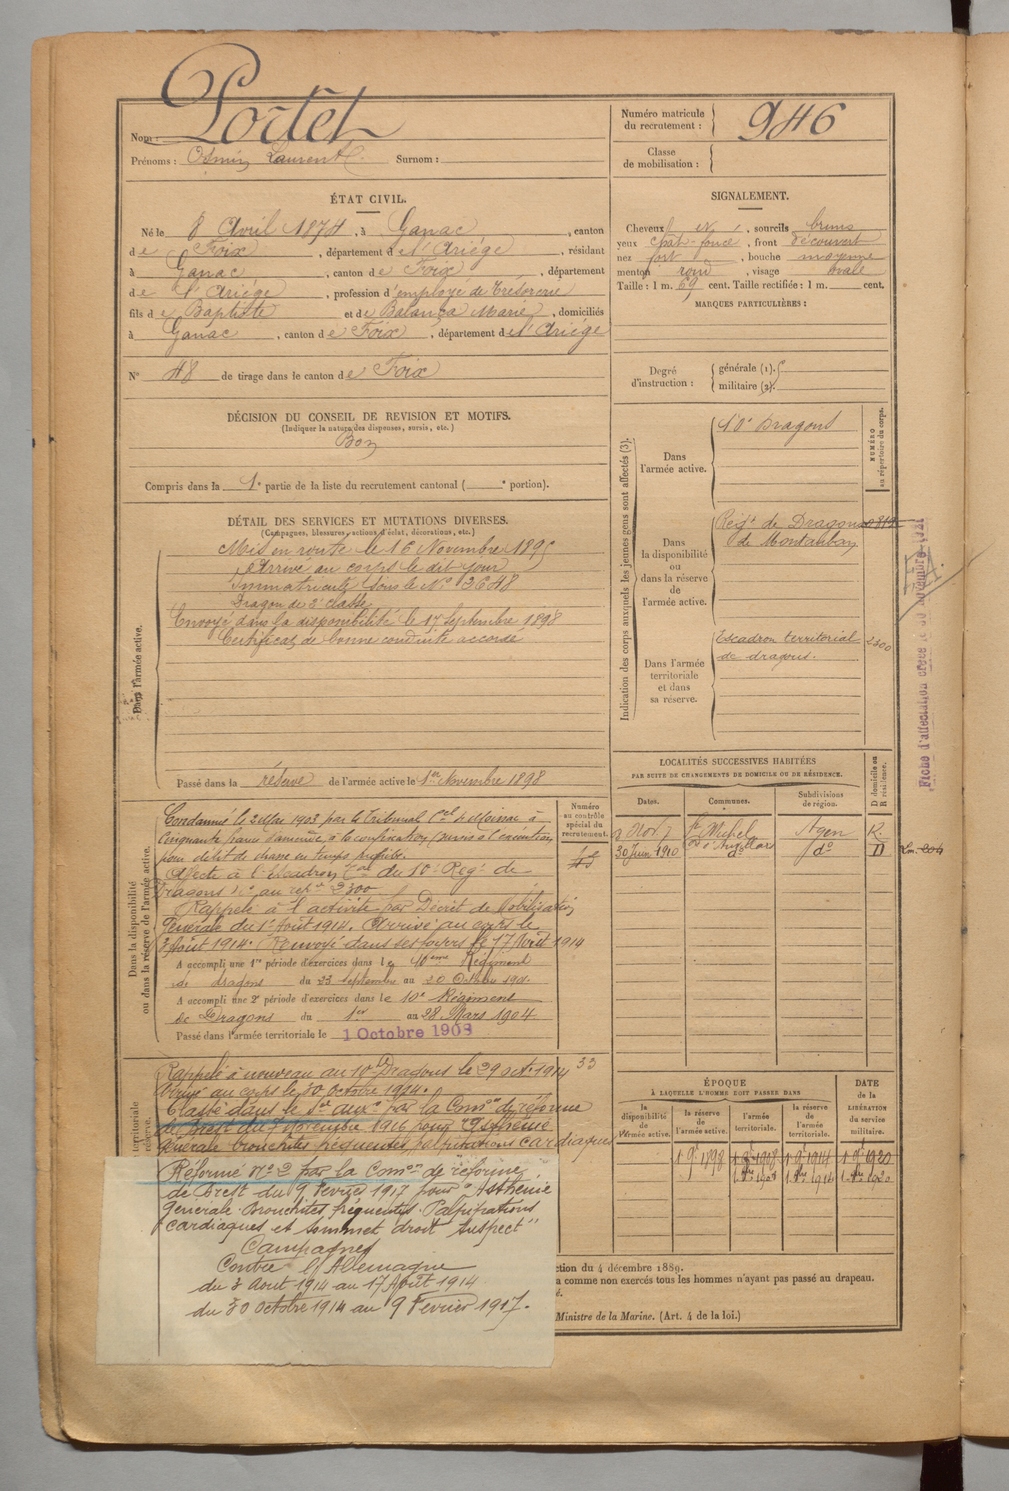 Nom : Portet
Prénoms : Osmin Laurent Surnom :
Numéro matricule du recrutement : 946
Classe de mobilisation :
ÉTAT CIVIL.
Né le 8 Avril 1874, à Ganac, canton
de Foix, département de l'Ariège, résidant
à Ganac, canton de Foix, département
de l'Ariège, profession d'employé de Trésorerie
fils de Baptiste et de Balança Marie, domiciliés
à Ganac, canton de Foix, département de l'Ariège
N° 48 de tirage dans le canton de Foix
SIGNALEMENT.
Cheveux et, sourcils bruns
yeux chat-foncé, front découvert
nez fort, bouche moyenne
menton rond, visage ovale
Taille : 1 m. 69 cent. Taille rectifiée : 1 m. cent.
MARQUES PARTICULIÈRES :
Degré d'instruction : générale (1).
militaire (2).
DÉCISION DU CONSEIL DE REVISION ET MOTIFS.
(Indiquer la nature des dispenses, sursis, etc.)
Bon
Compris dans la 1e partie de la liste du recrutement cantonal ( e portion).
DÉTAIL DES SERVICES ET MUTATIONS DIVERSES.
(Campagnes, blessures, actions d'éclat, décorations, etc.)
Dans l'armée active.
Mis en route le 16 Novembre 1895
Arrivé au corps le dit jour
Immatriculé sous le N° 3648
Dragon de 2e classe
Envoyé dans la disponibilité le 17 Septembre 1898
Certificat de bonne conduite accordé
Passé dans la réserve de l'armée active le 1er Novembre 1898
Indication des corps auxquels les jeunes gens sont affectés (3).
NUMÉRO au répertoire du corps.
Dans l'armée active.
10e Dragons
Dans la disponibilité ou dans la réserve de l'armée active.
Régt de Dragons
de Montauban
Dans l'armée territoriale et dans sa réserve.
Escadron territorial 2300
de dragons.
Fiche d'affectation créée le 30 novembre 1921
LOCALITÉS SUCCESSIVES HABITÉES
PAR SUITE DE CHANGEMENTS DE DOMICILE OU DE RÉSIDENCE.
Dates. Communes. Subdivisions de région. D domicile ou R résidence.
St Michel Agen R.
30 Juin 1910 do do D
Dans la disponibilité ou dans la réserve de l'armée active.
Numéro au contrôle spécial du recrutement.
Condamné le 2 Mai 1903 par le Tribunal à
cinquante francs d'amende, à la confiscation
pour délit de chasse en temps prohibé.
Affecté à l'Escadron du 10e Régt de
Dragons N° au rep. 2300
Rappelé à l'activité par Décret de Mobilisation
Générale du 1er Août 1914. Arrivé au corps le
3 Août 1914. Renvoyé dans ses foyers le 17 Août 1914
A accompli une 1re période d'exercices dans le Régiment
de dragons du 23 septembre au 20 Octobre 1901
A accompli une 2e période d'exercices dans le 10e Régiment
de Dragons du 1er au 28 Mars 1904
Passé dans l'armée territoriale le 1 Octobre 1908
33
Rappelé à nouveau au 10e Dragons le 29 oct. 1914
Arrivé au corps le 30 Octobre 1914.
Classé dans le Sce auxre par la Comon de réforme
de Brest du Novembre 1916 pour "Asthénie
générale bronchites fréquentes, palpitations cardiaques
Réformé N° 2 par la Comon de réforme
de Brest du 9 Février 1917 pour "Asthénie
Générale. Bronchites fréquentes. Palpitations
cardiaques et sommet droit suspect"
Campagnes
Contre l'Allemagne
du 3 Août 1914 au 17 Août 1914
du 30 Octobre 1914 au 9 Février 1917.
ÉPOQUE
À LAQUELLE L'HOMME DOIT PASSER DANS
DATE DE LA LIBÉRATION du service militaire.
la disponibilité de l'armée active. la réserve de l'armée active. l'armée territoriale. la réserve de l'armée territoriale.
1 9bre 1898 1 9bre 1908 1 9bre 1914 1 9bre 1920
ction du 4 décembre 1889.
a comme non exercés tous les hommes n'ayant pas passé au drapeau.
é.
Ministre de la Marine. (Art. 4 de la loi.)